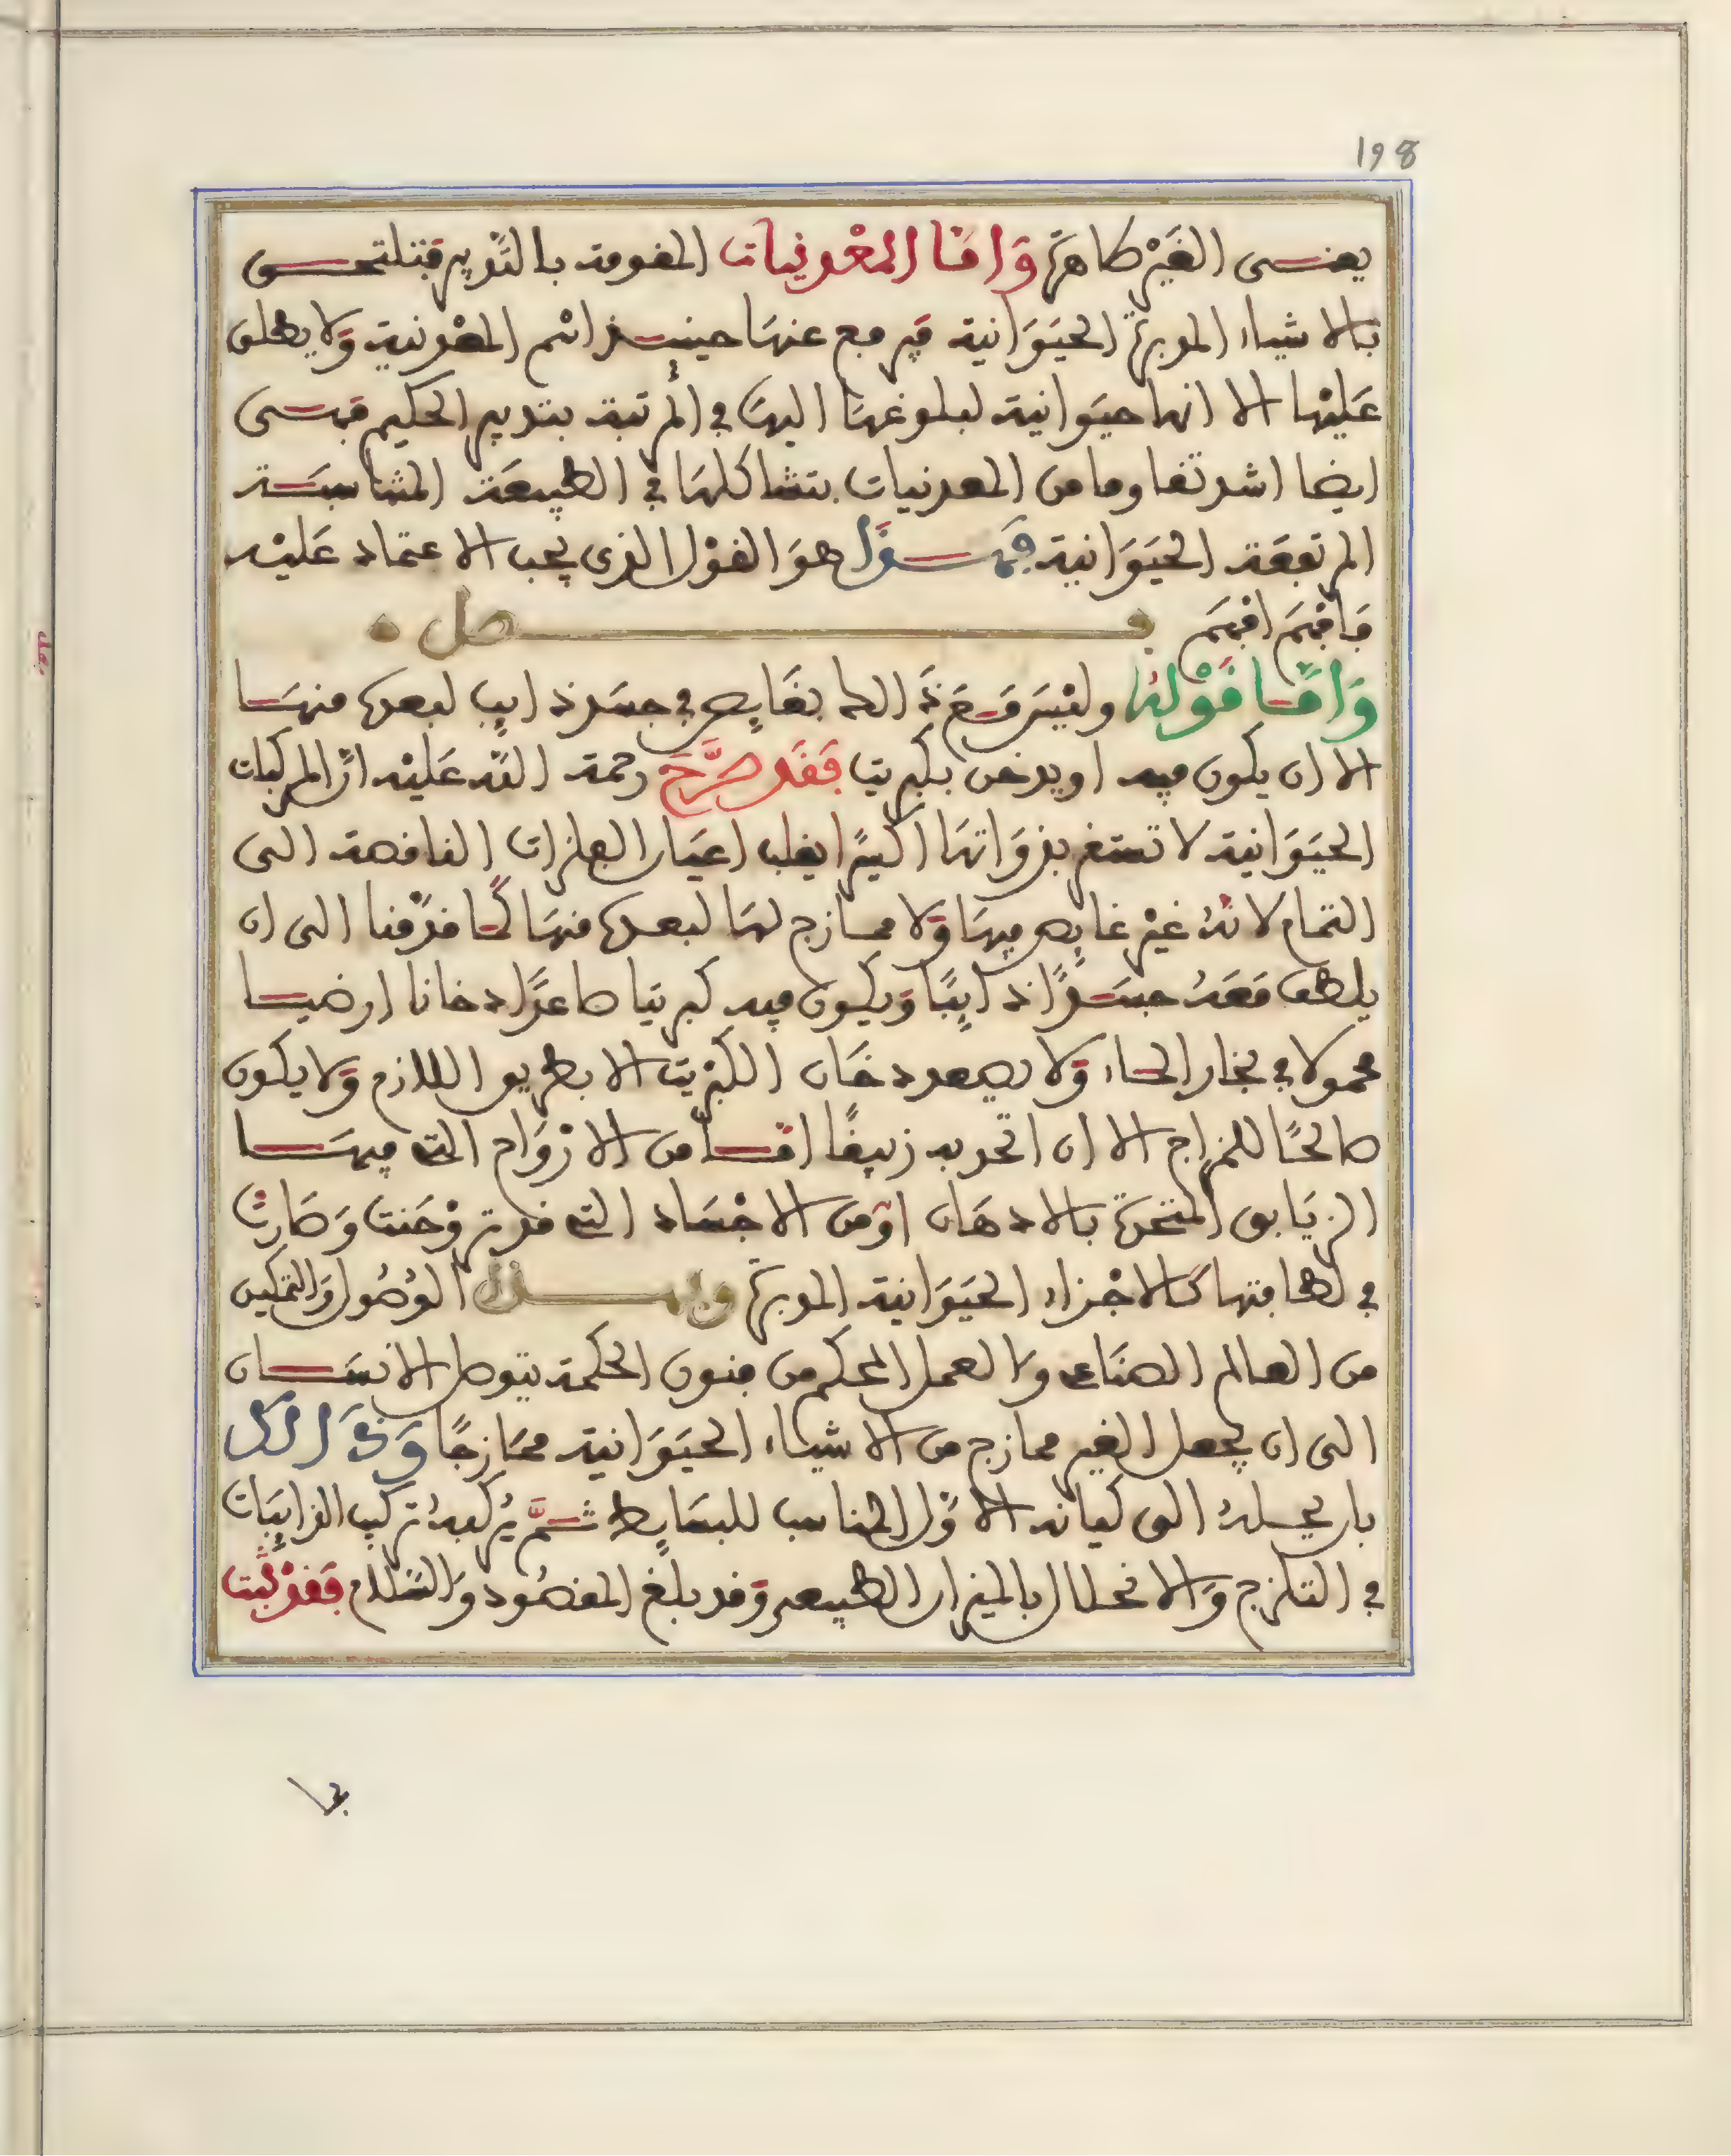 198
يعنى الغَيْر طاهرة وَامّا المعْدنيات المقومة بالتّدبير فتلتحق
بالاشياء المدبرة الحيَوَانية فيرفع عنهَا حينئذ اسْم المعْدنية وَلا يطلق
عَليْها الا انها حيَوانية لبلوغهَا اليهَا في المرتبة بتدبير الحكيم فهى
ايضا اشد تقاوما من المعدنيات بتشاكلهَا في الطبيعَة المناسبَة
المرتفعَة الحيَوَانية فهذا هوَ القوْل الذى يجب الاعتماد عَليْه
فافهَم افهَم فصل
وَامّا قَوْلهُ وليْسَ مَعَ ذَا الماء بغَايص في جسَد ذايب لبعده منهَا
الا ان يكون فيه او يدخن بكبريت فَقَد صَرَّحَ رحمة اللّه عَليْه انّ المركبات
الحيَوَانية لا تستقر بذوَاتهَا اكسيرًا يقلب اعيَان الفلزات الناقصة الى
التمام لانهُ غيْر غايص فيهَا وَلا ممازج لهَا لبعده منهَا كمَا قدّمنا الى ان
يلطف مَعَهُ جسَدًا ذايبًا وَيكون فيه كبريتا صاعدًا دخانا ارضيا
محمولا في بخار الماء وَلا يصعد دخَان الكبْريت الا بطريق اللازم وَلا يكون
صالحًا للمزاج الا ان اتحد به زيبقًا امّا من الارْوَاح التى فيهَا
الزيَابق المتحدة بالادهَان اوْ من الاجْسَاد التى قد تروْحَنت وَصَارتْ
في لطافتها كالاجْزاء الحيَوَانية المدبرة وَبهذا الوُصُول وَالتمكين
من العالم الصنَاعى والعمل المحكم من فنون الحكمة يتوصل الانسَان
الى ان يجعل الغير ممازج من الاشياء الحيَوَانية ممَازجًا وَذَالك
بان يحيلهُ الى كيانه الاوّل المناسب للبسَايط ثمَّ يُركبهُ تركيب الذايبَات
في التلازج وَالانحلال بالميزان الطبيعى وَقد بلغ المقصُود وَالسّلام فَقدْ ثبت